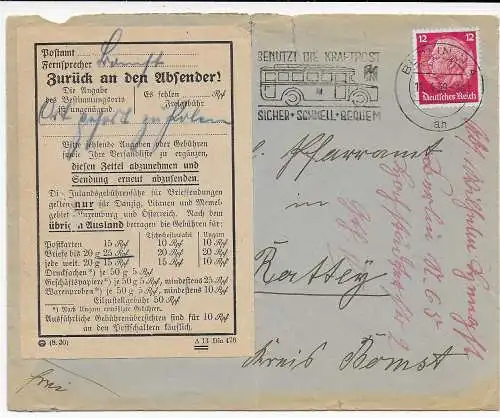 Postamt
Fernsprecher Bomst
Zurück an den Absender!
Die Angabe Es fehlen Rpf
des Bestimmungsorts Freigebühr
ist ungenügend.
Ort gehört zu Polen
Bitte fehlende Angaben oder Gebühren
sowie Ihre Versandstelle zu ergänzen,
diesen Zettel abzunehmen und
Sendung erneut abzusenden.
Die Inlandsgebührensätze für Briefsendungen
gelten nur für Danzig, Litauen und Memel-
gebiet, Luxemburg und Österreich. Nach dem
übrigen Ausland betragen die Gebühren für:
Tschechoslowakei Ungarn
Postkarten 15 Rpf 10 Rpf 10 Rpf
Briefe bis 20 g 25 Rpf 20 Rpf 20 Rpf
jede weit. 20 g 15 Rpf 15 Rpf 10 Rpf
Drucksachen*) je 50 g 5 Rpf
Geschäftspapiere*) je 50 g 5 Rpf, mindestens 25 Rpf
Warenproben*) je 50 g 5 Rpf, mindestens 10 Rpf
Eilzustellgebühr 50 Rpf
*) Nach Ungarn ermäßigte Gebühren.
Ausführliche Gebührenübersichten sind für 10 Rpf
an den Postschaltern käuflich.
A 13 Din 476
BENUTZT DIE KRAFTPOST
SICHER + SCHNELL + BEQUEM
BERLIN
an
12 12
Deutsches Reich
Pfarramt
in
Rattey
Kreis Bomst
frei
Abs. Wilhelm
Berlin N. 65